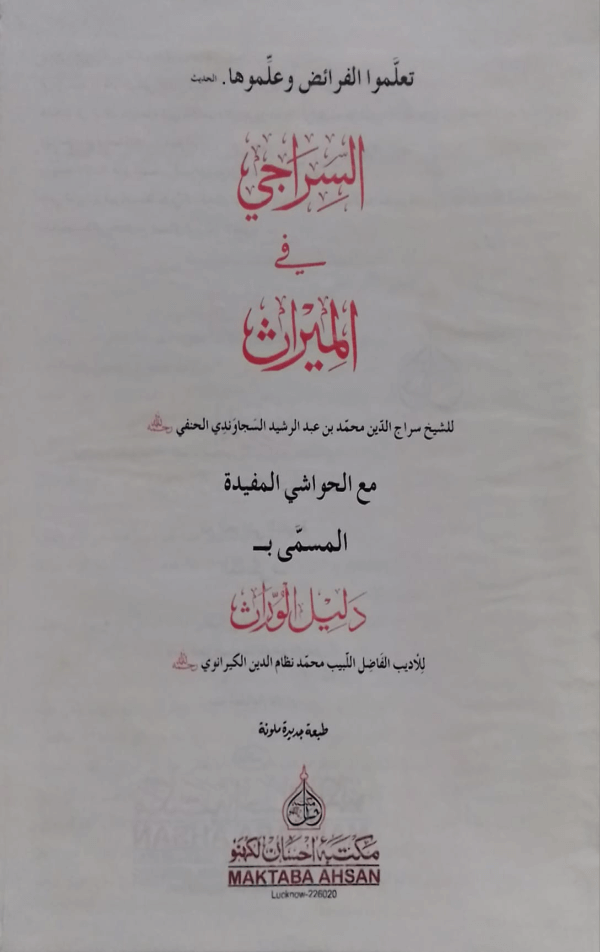 تعلَّموا الفرائض وعلِّموها. الحديث
السِّرَاجي
في
المِيْرَاث
للشيخ سراج الدّين محمّد بن عبد الرشيد السَجاوَندِي الحنفي رحمه الله
مع الحواشي المفيدة
المسمَّى بـ
دَلِيْل الوُرَّاث
لِلأديب الفَاضِل اللَّبيب محمّد نظام الدين الكيرانوي رحمه الله
طبعة جديدة ملونة
مكتبة احسان لكهنو
MAKTABA AHSAN
Lucknow-226020